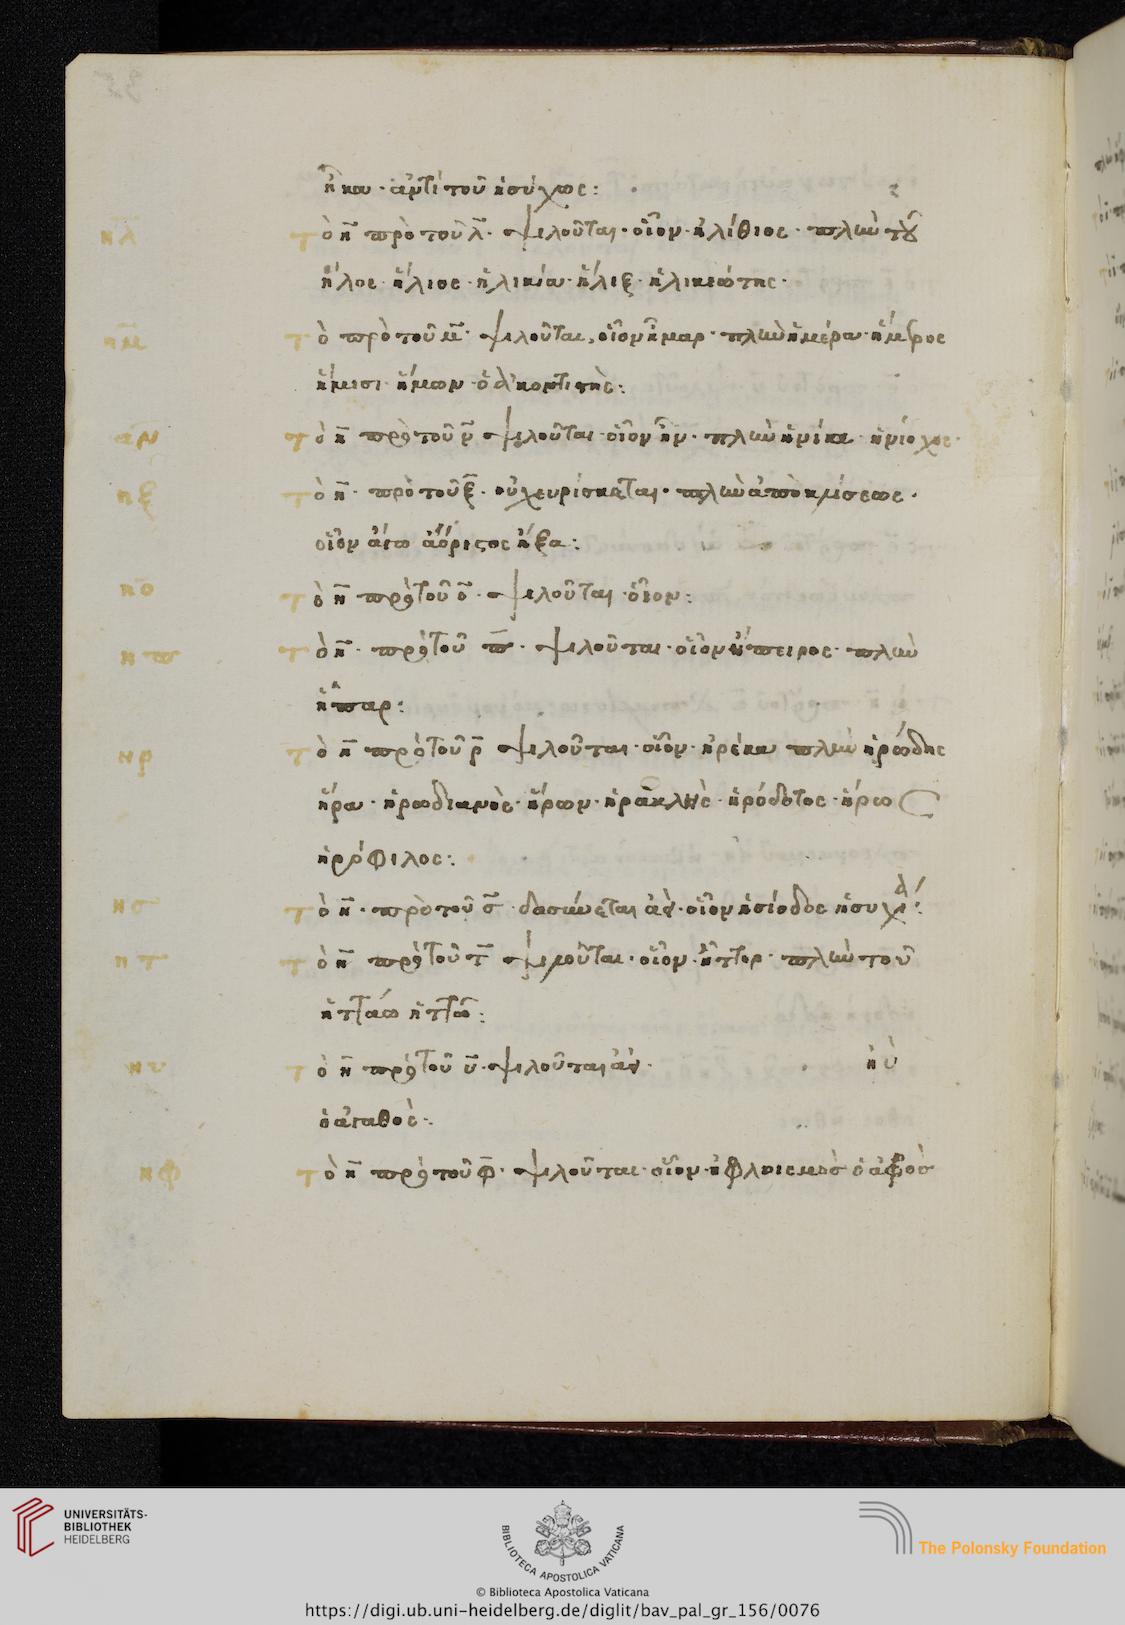 ἦκα · ἀντὶ τοῦ ἡσύχως :
ηλ τὸ η πρὸ τοῦ λ · ψιλοῦται · οἷον · ἠλίθιος · πλὴν τοῦ
ἧλος · ἥλιος · ἡλικία · ἧλιξ · ἡλικιώτης ·
ημ τὸ πρὸ τοῦ μ · ψιλοῦται · οἷον ἦμαρ · πλὴν ἡμέρα · ἥμερος
ἥμισι · ἥμων · ὁ ἀκοντιστὴς :
ην τὸ η πρὸ τοῦ ν ψιλοῦται · οἷον ἦν · πλὴν ἡνίκα · ἡνίοχος ·
ηξ τὸ η · πρὸ τοῦ ξ · οὐχ εὑρίσκεται · πλὴν ἀπὸ κλίσεως ·
οἷον ἄγω ἀόριστος ἦξα :
ηο τὸ η πρὸ τοῦ ο · ψιλοῦται · οἷον :
ηπ τὸ η · πρὸ τοῦ π · ψιλοῦται · οἷον ἤπειρος · πλὴν
ἧπαρ :
ηρ τὸ η πρὸ τοῦ ρ ψιλοῦται · οἷον · ἠρέκα πλὴν ἡρώδης
ἥρα · ἡρωδιανὸς · ἥρων · ἡρακλῆς · ἡρόδοτος · ἥρως
ἡρόφιλος :
ησ τὸ η · πρὸ τοῦ σ · δασύνεται ἀεί · οἷον ἡσίοδος ἡσυχία :
ητ τὸ η πρὸ τοῦ τ ψιλοῦται · οἷον · ἦτορ · πλὴν τοῦ
ἡττάω ἡττῶ :
ηυ τὸ η πρὸ τοῦ υ · ψιλοῦται ἀεί · ἠὺ
ὁ ἀγαθὸς :
ηφ τὸ η πρὸ τοῦ φ · ψιλοῦται · οἷον · ὁ ἀφρὸς
UNIVERSITÄTS-
BIBLIOTHEK
HEIDELBERG
BIBLIOTECA APOSTOLICA VATICANA
The Polonsky Foundation
© Biblioteca Apostolica Vaticana
https://digi.ub.uni-heidelberg.de/diglit/bav_pal_gr_156/0076